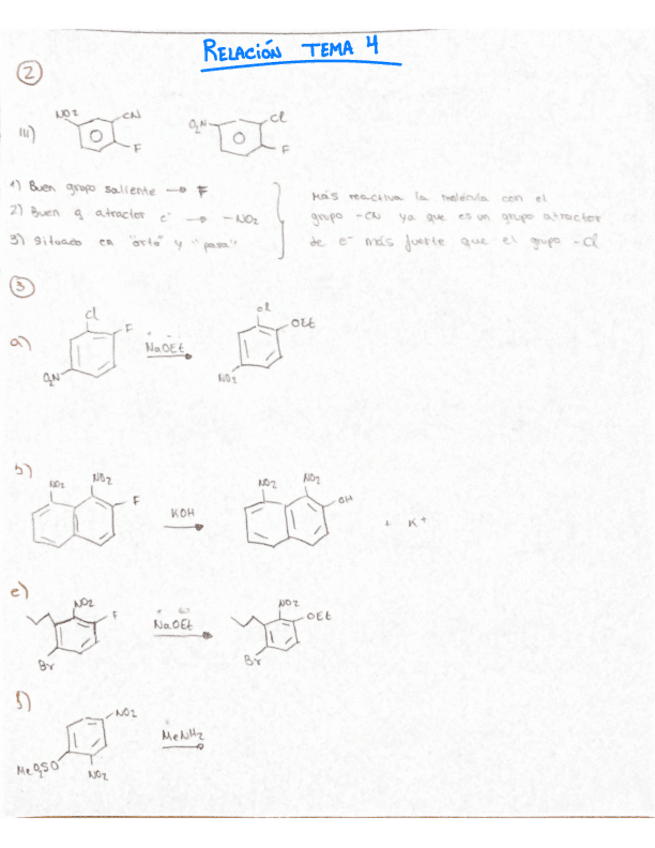 RELACIÓN TEMA 4
2
III)
NO2 CN F
O2N Cl F
1) Buen grupo saliente → F
2) Buen g atractor e- → -NO2
3) Situado en "orto" y "para"
Más reactiva la molécula con el
grupo -CN ya que es un grupo atractor
de e- más fuerte que el grupo -Cl
3
a)
Cl F O2N
NaOEt
Cl OEt NO2
b)
NO2 NO2 F
KOH
NO2 NO2 OH
+ K+
e)
NO2 F Br
NaOEt
NO2 OEt Br
f)
NO2 MeO2SO NO2
MeNH2